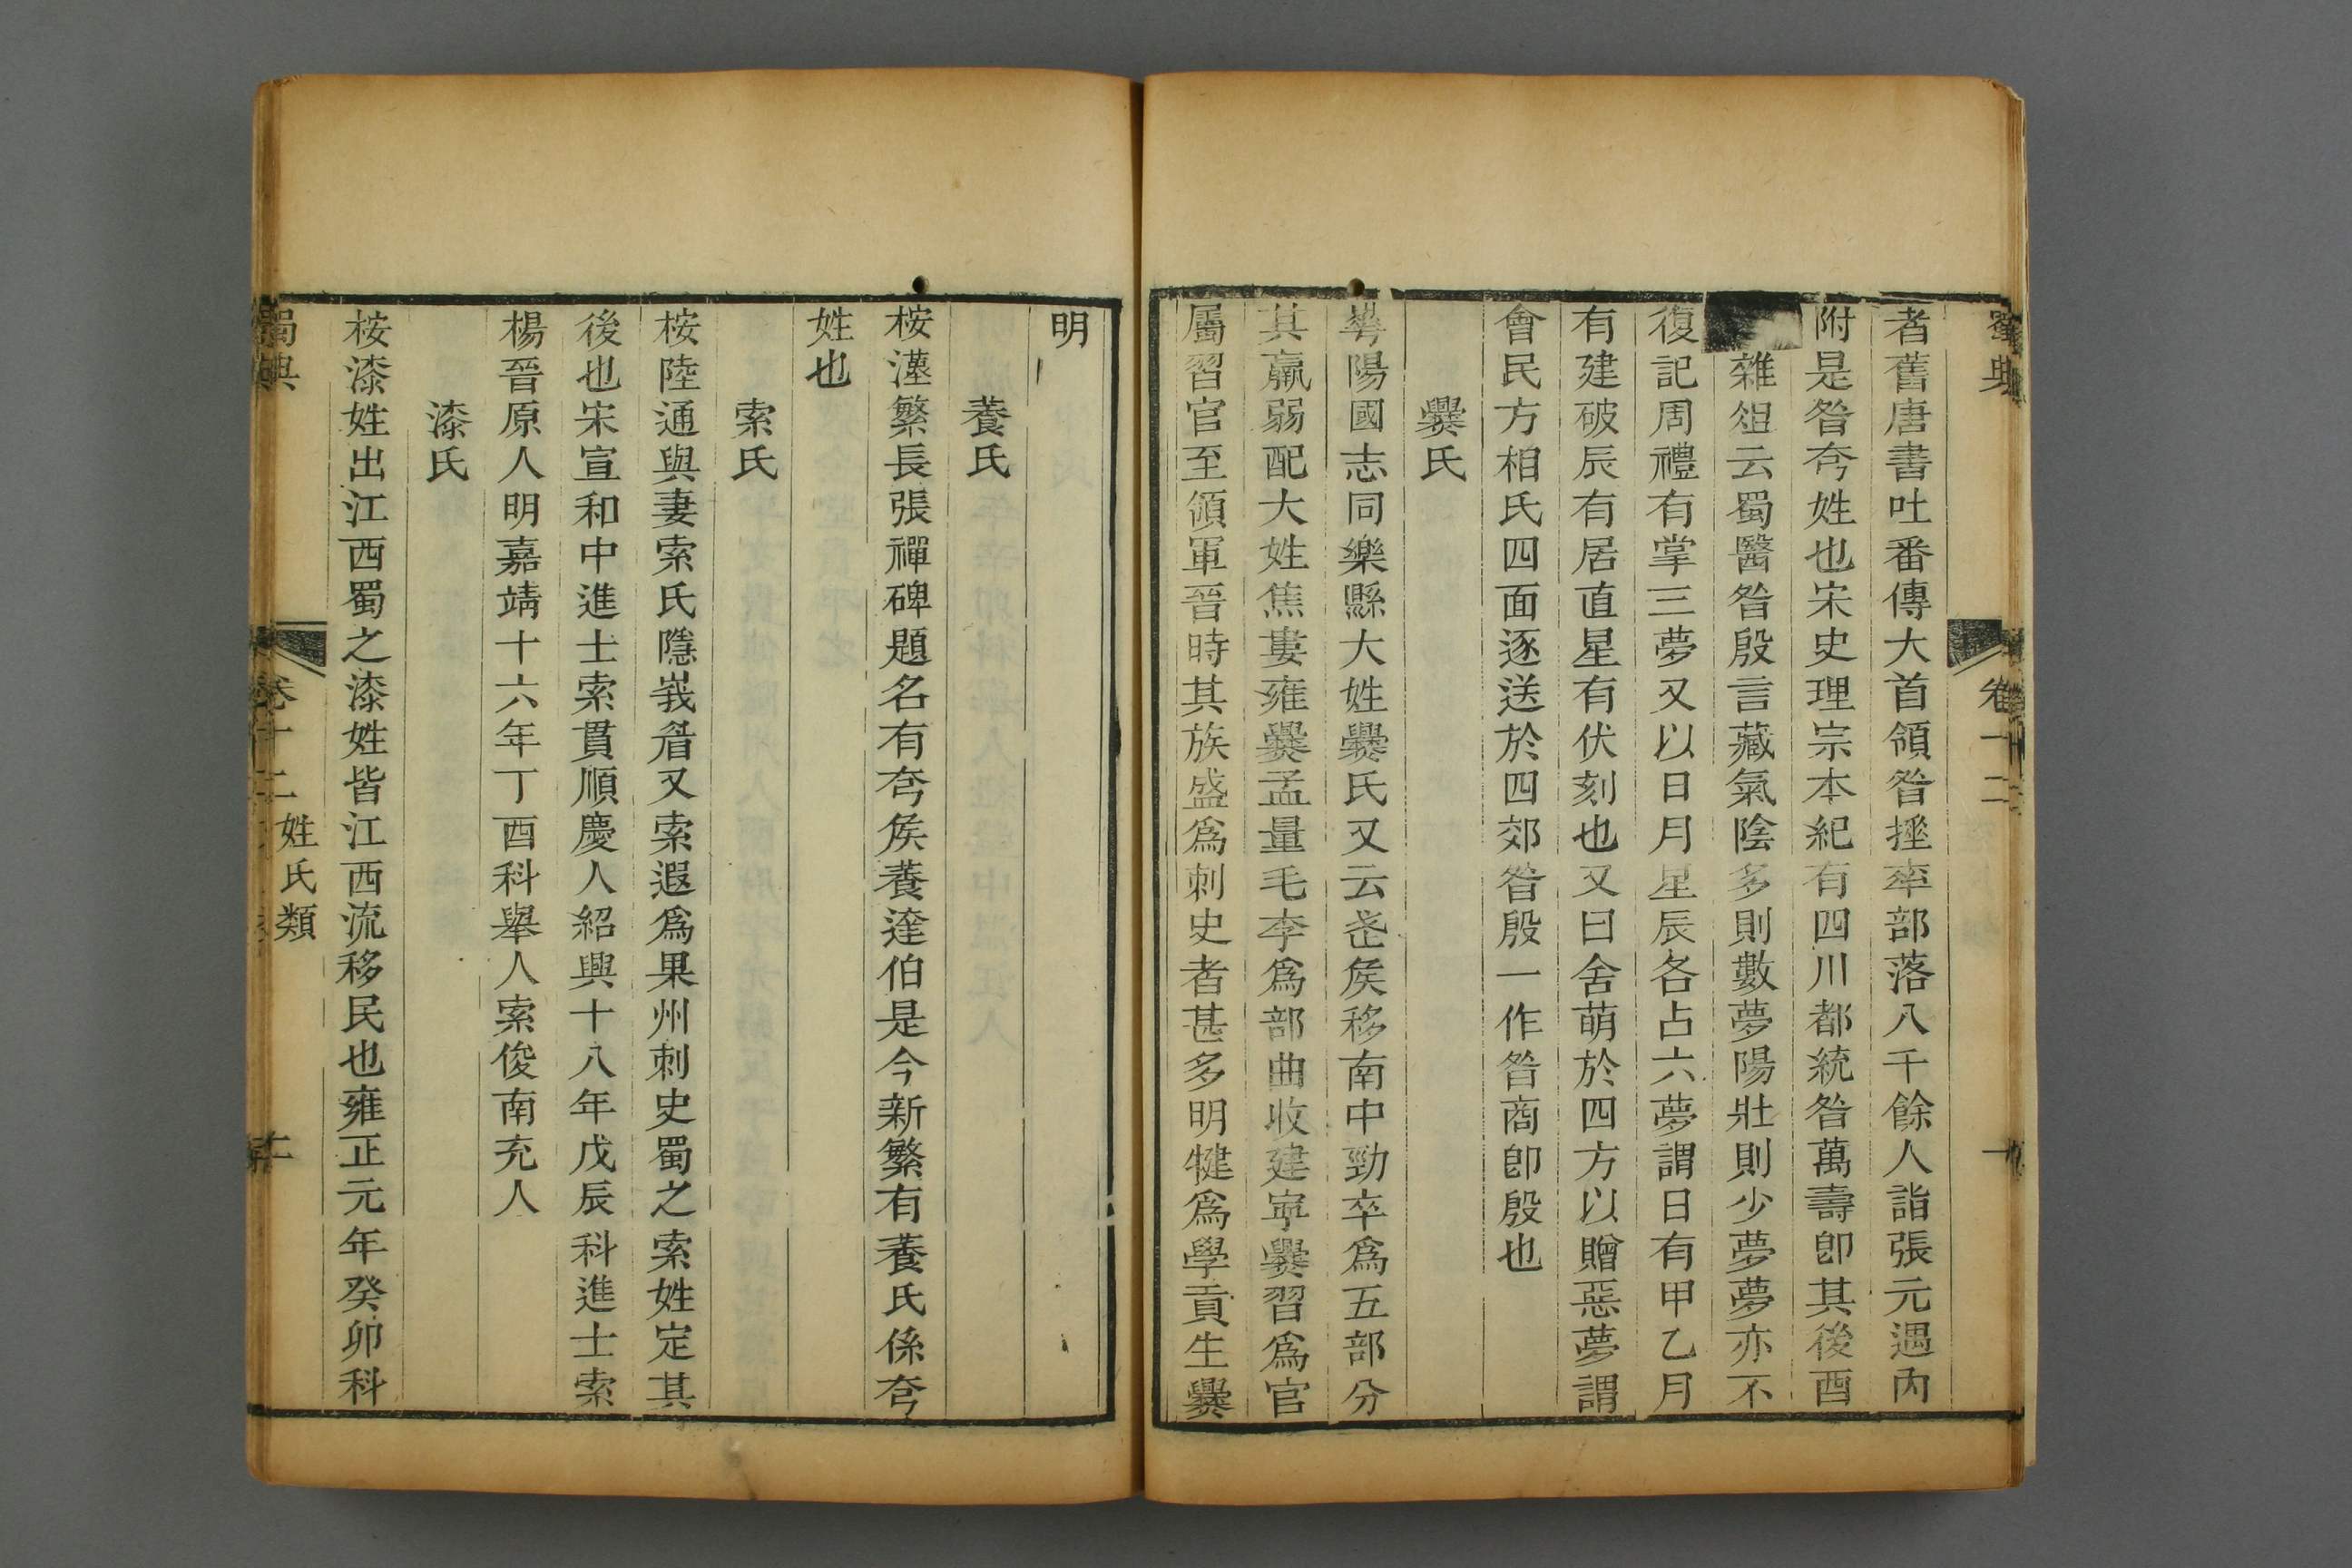 蜀典
卷十二
者舊唐書吐番傳大首領昝捶率部落八千餘人詣張元遇內
附是昝夸姓也宋史理宗本紀有四川都統昝萬壽卽其後酉
雜俎云蜀醫昝殷言藏氣陰多則數夢陽壯則少夢夢亦不
復記周禮有掌三夢又以日月星辰各占六夢謂日有甲乙月
有建破辰有居直星有伏刻也又曰舍萌於四方以贈惡夢謂
會民方相氏四面逐送於四郊昝殷一作昝商卽殷也
爨氏
華陽國志同樂縣大姓爨氏又云丞矦移南中勁卒爲五部分
其羸弱配大姓焦婁雍爨孟量毛李爲部曲收建寧爨習爲官
屬習官至領軍晉時其族盛爲刺史者甚多明犍爲學貢生爨
明
養氏
桉漢繁長張禪碑題名有夸矦養達伯是今新繁有養氏係夸
姓也
索氏
桉陸通與妻索氏隱峩睂又索遐爲果州刺史蜀之索姓定其
後也宋宣和中進士索貫順慶人紹興十八年戊辰科進士索
楊晉原人明嘉靖十六年丁酉科舉人索俊南充人
漆氏
桉漆姓出江西蜀之漆姓皆江西流移民也雍正元年癸卯科
蜀典
卷十二
姓氏類